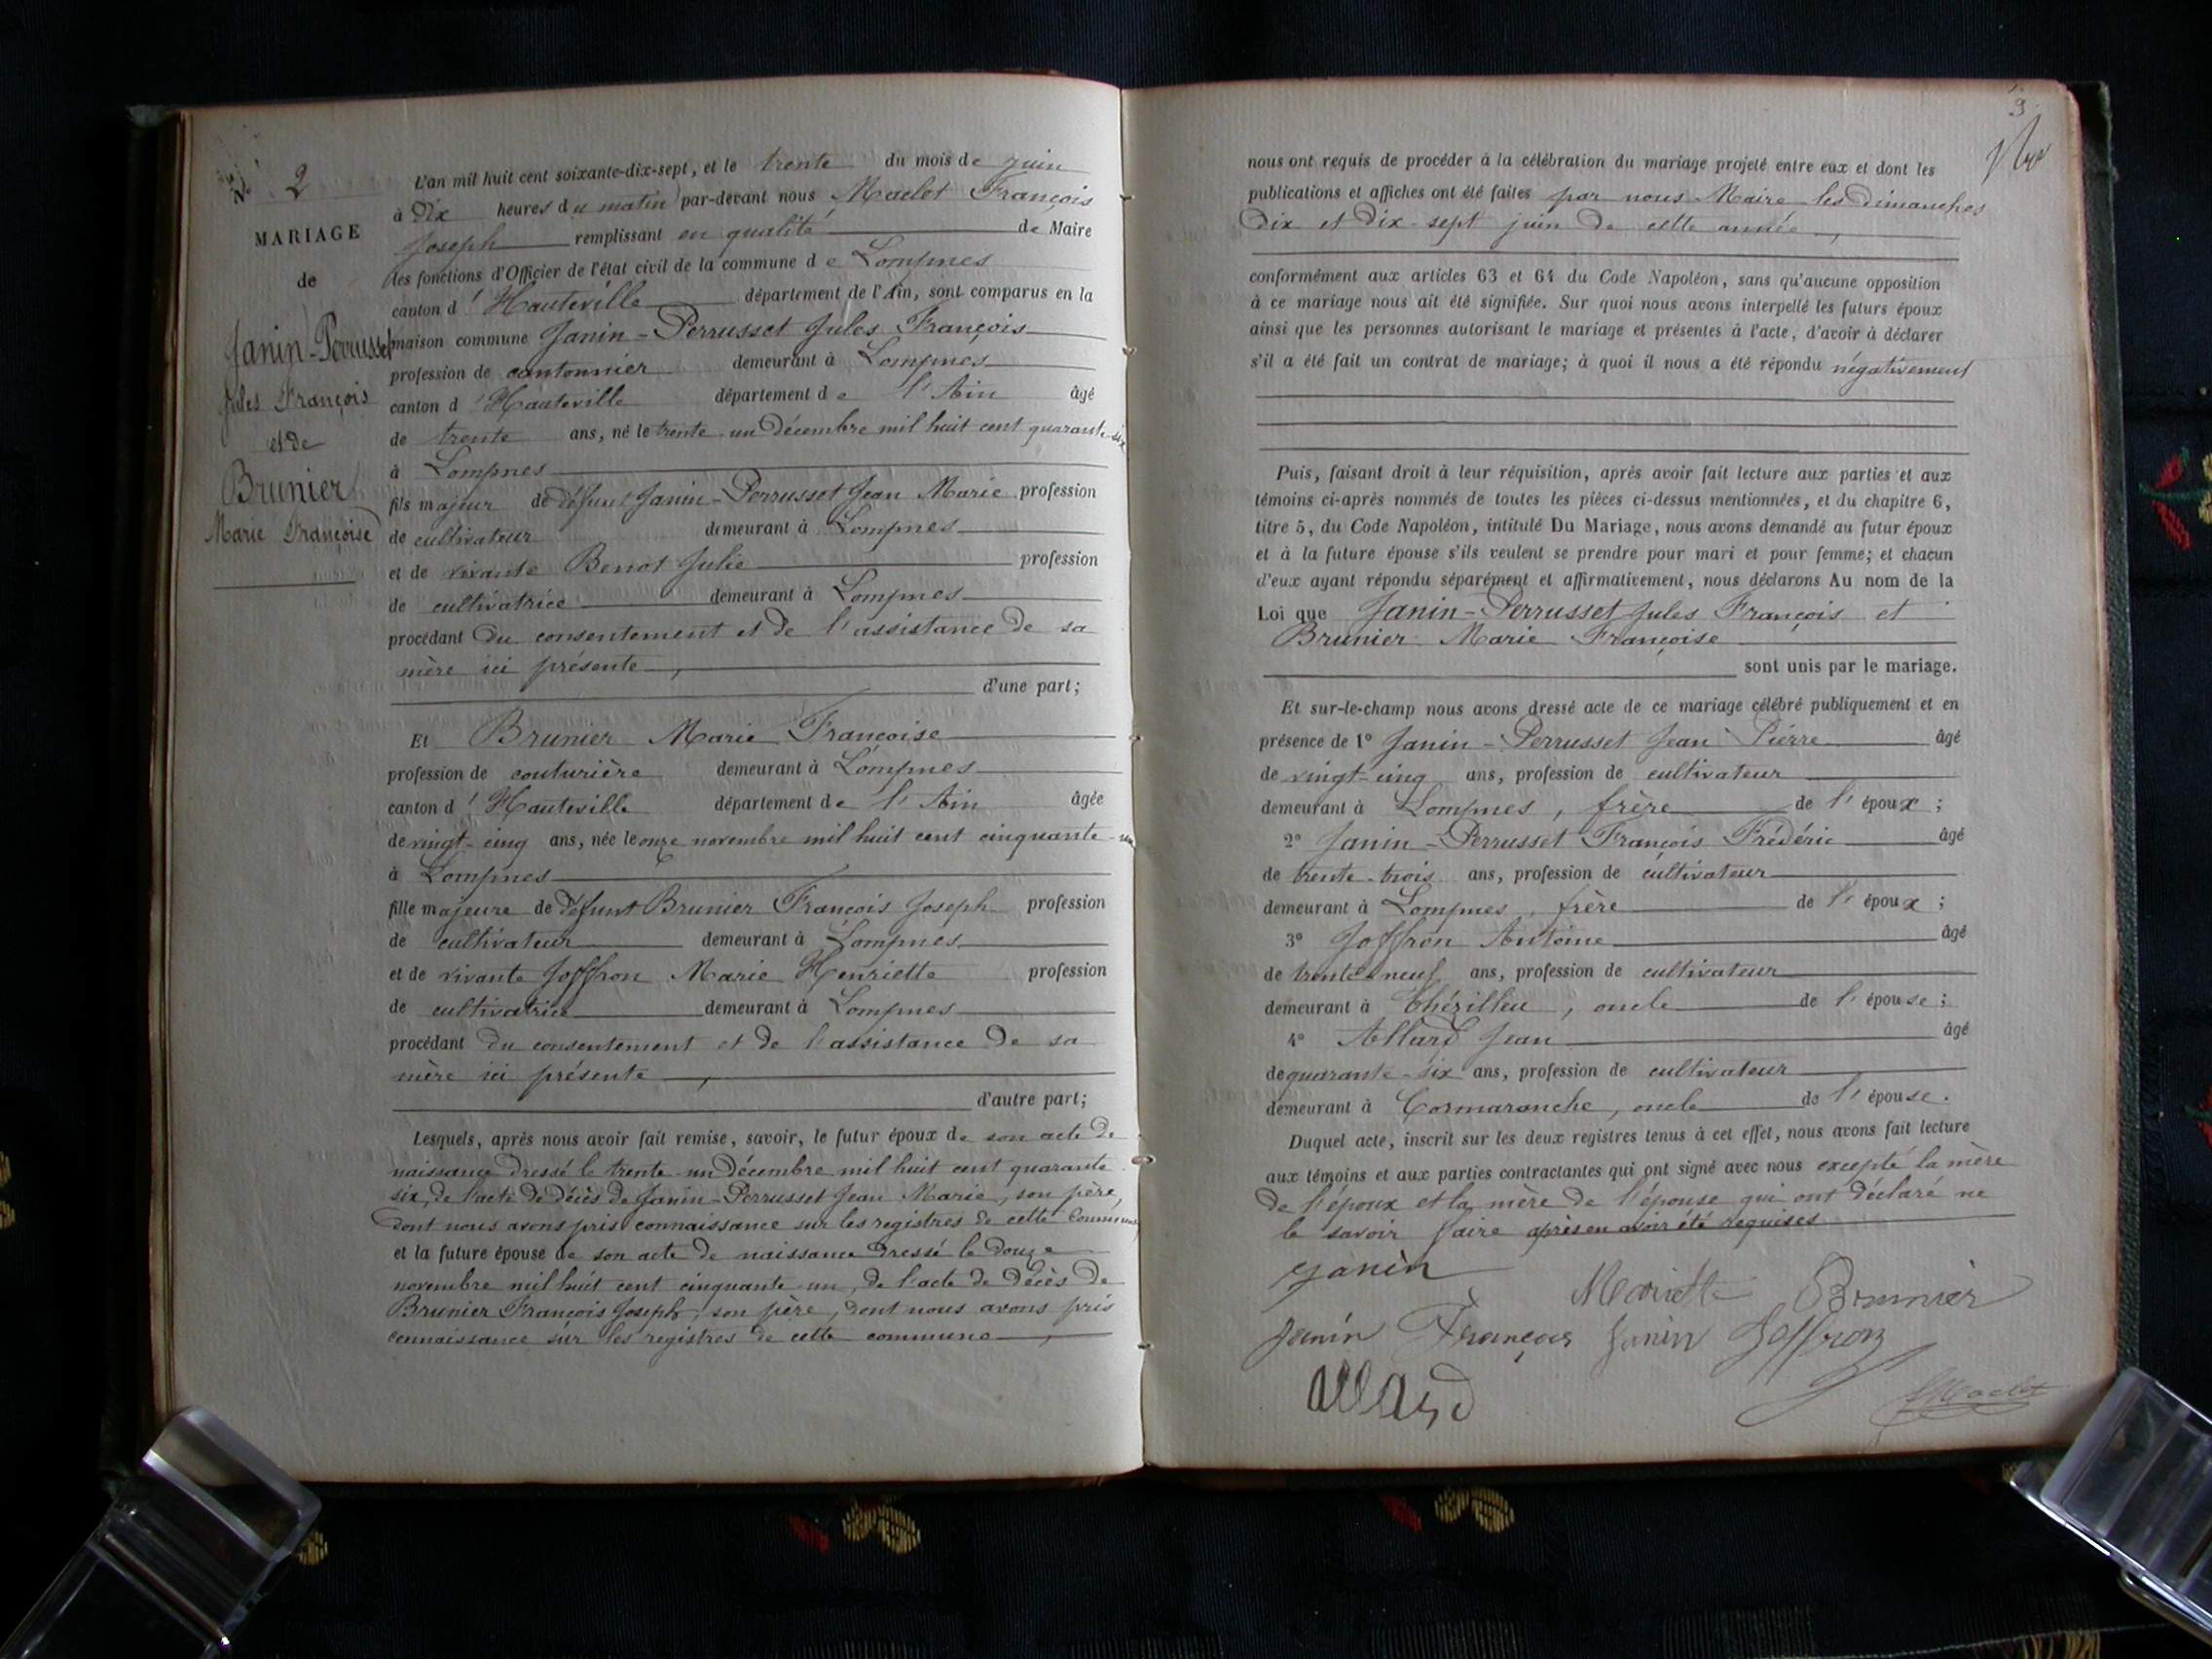 N° 2
MARIAGE
de
Janin-Perrusset
Jules François
et de
Brunier
Marie Françoise
L'an mil huit cent soixante-dix-sept, et le trente du mois de juin
à dix heures du matin par-devant nous Maclet François
Joseph remplissant en qualité de Maire
les fonctions d'Officier de l'état civil de la commune de Lompnes
canton d'Hauteville département de l'Ain, sont comparus en la
maison commune Janin-Perrusset Jules François
profession de cantonnier demeurant à Lompnes
canton d'Hauteville département de l'Ain âgé
de trente ans, né le trente-un décembre mil huit cent quarante-six
à Lompnes
fils majeur de défunt Janin-Perrusset Jean Marie profession
de cultivateur demeurant à Lompnes
et de vivante Benot Julie profession
de cultivatrice demeurant à Lompnes
procédant du consentement et de l'assistance de sa
mère ici présente,
d'une part;
Et Brunier Marie Françoise
profession de couturière demeurant à Lompnes
canton d'Hauteville département de l'Ain âgée
de vingt-cinq ans, née le onze novembre mil huit cent cinquante-un
à Lompnes
fille majeure de défunt Brunier François Joseph profession
de cultivateur demeurant à Lompnes
et de vivante Joffron Marie Henriette profession
de cultivatrice demeurant à Lompnes
procédant du consentement et de l'assistance de sa
mère ici présente,
d'autre part;
Lesquels, après nous avoir fait remise, savoir, le futur époux de son acte de
naissance dressé le trente-un décembre mil huit cent quarante-
six, de l'acte de décès de Janin-Perrusset Jean Marie, son père,
dont nous avons pris connaissance sur les registres de cette commune,
et la future épouse de son acte de naissance dressé le douze
novembre mil huit cent cinquante-un, de l'acte de décès de
Brunier François Joseph, son père, dont nous avons pris
connaissance sur les registres de cette commune,
3
nous ont requis de procéder à la célébration du mariage projeté entre eux et dont les
publications et affiches ont été faites par nous Maire les dimanches
dix et dix-sept juin de cette année,
conformément aux articles 63 et 64 du Code Napoléon, sans qu'aucune opposition
à ce mariage nous ait été signifiée. Sur quoi nous avons interpellé les futurs époux
ainsi que les personnes autorisant le mariage et présentes à l'acte, d'avoir à déclarer
s'il a été fait un contrat de mariage; à quoi il nous a été répondu négativement
Puis, faisant droit à leur réquisition, après avoir fait lecture aux parties et aux
témoins ci-après nommés de toutes les pièces ci-dessus mentionnées, et du chapitre 6,
titre 5, du Code Napoléon, intitulé Du Mariage, nous avons demandé au futur époux
et à la future épouse s'ils veulent se prendre pour mari et pour femme; et chacun
d'eux ayant répondu séparément et affirmativement, nous déclarons Au nom de la
Loi que Janin-Perrusset Jules François et
Brunier Marie Françoise
sont unis par le mariage.
Et sur-le-champ nous avons dressé acte de ce mariage célébré publiquement et en
présence de 1° Janin-Perrusset Jean Pierre âgé
de vingt-cinq ans, profession de cultivateur
demeurant à Lompnes, frère de l'époux;
2° Janin-Perrusset François Frédéric âgé
de trente-trois ans, profession de cultivateur
demeurant à Lompnes, frère de l'époux;
3° Joffron Antoine âgé
de trente-neuf ans, profession de cultivateur
demeurant à Thézillieu, oncle de l'épouse;
4° Allard Jean âgé
de quarante-six ans, profession de cultivateur
demeurant à Cormaranche, oncle de l'épouse.
Duquel acte, inscrit sur les deux registres tenus à cet effet, nous avons fait lecture
aux témoins et aux parties contractantes qui ont signé avec nous excepté la mère
de l'époux et la mère de l'épouse qui ont déclaré ne
le savoir faire après en avoir été requises
Janin
Mariette Brunier
Janin François Janin Joffron
allard
Maclet